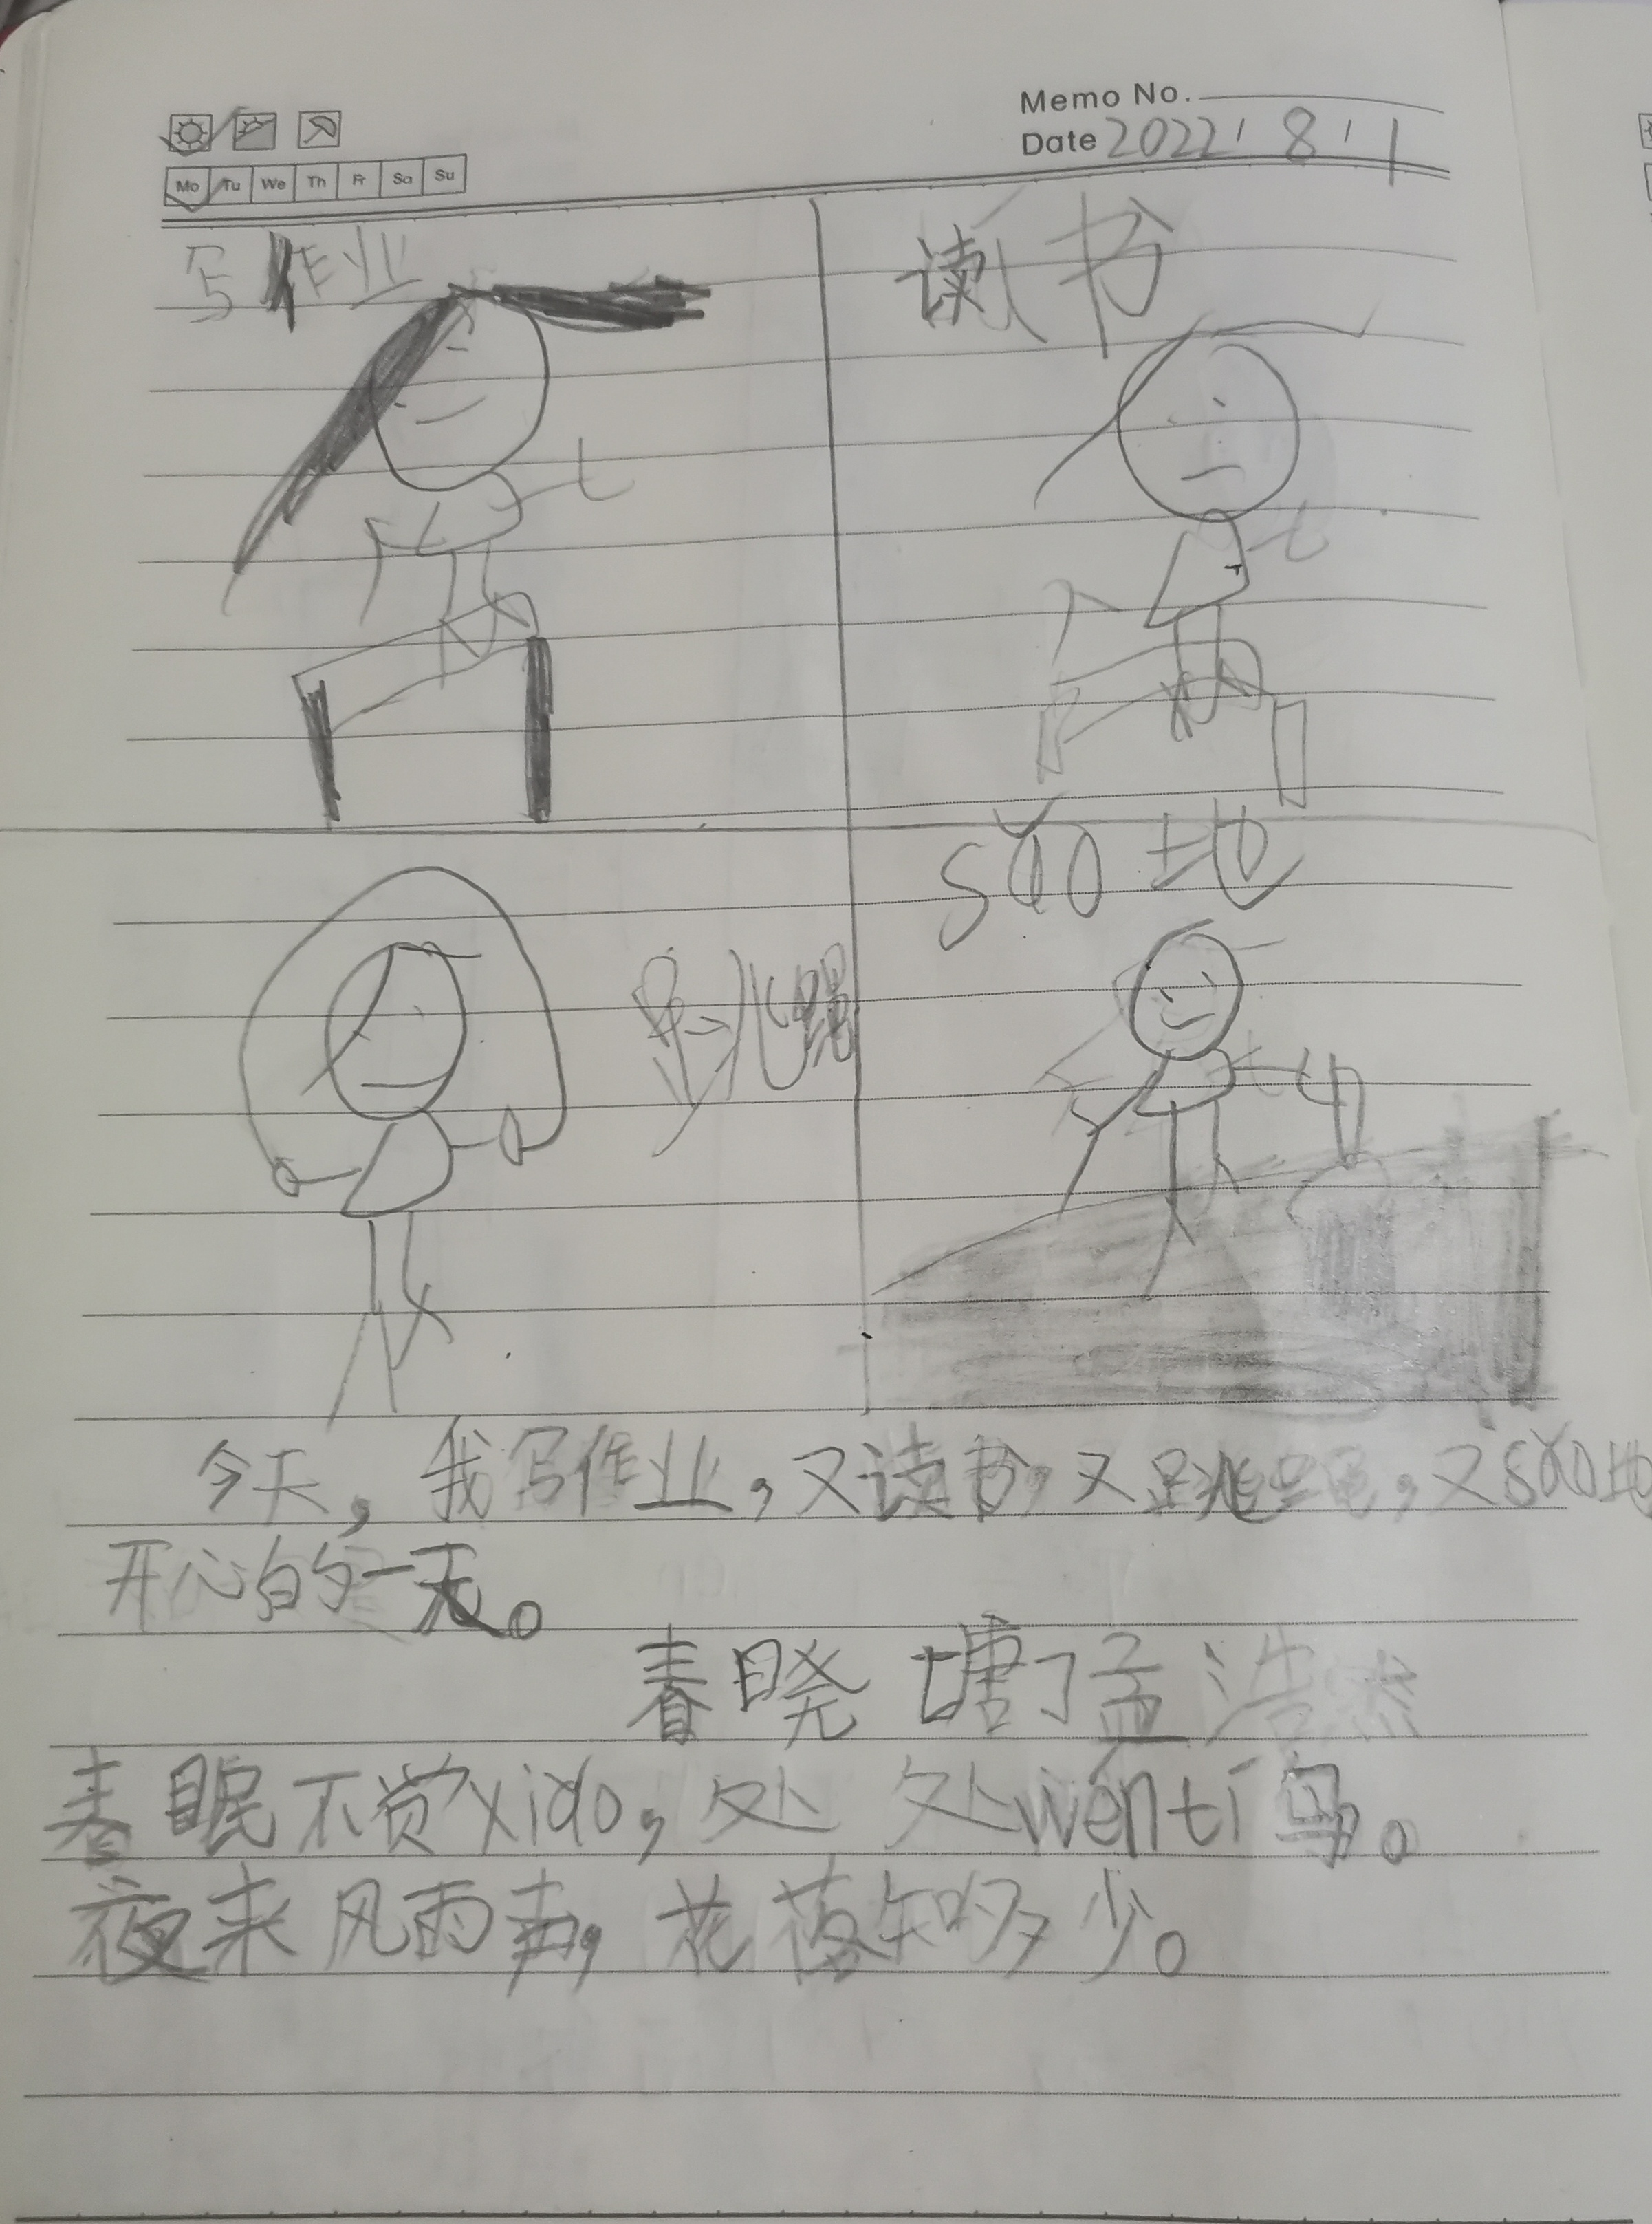 Memo No.
Date 2022 8 1
Mo Tu We Th Fr Sa Su
写作业
读书
sǎo 地
跳绳
今天,我写作业,又读书,又跳绳,又sǎo地
开心的一天。
春晓 塘 孟浩然
春眠不觉xiǎo,处处wén tí 鸟。
夜来风雨声,花落知多少。